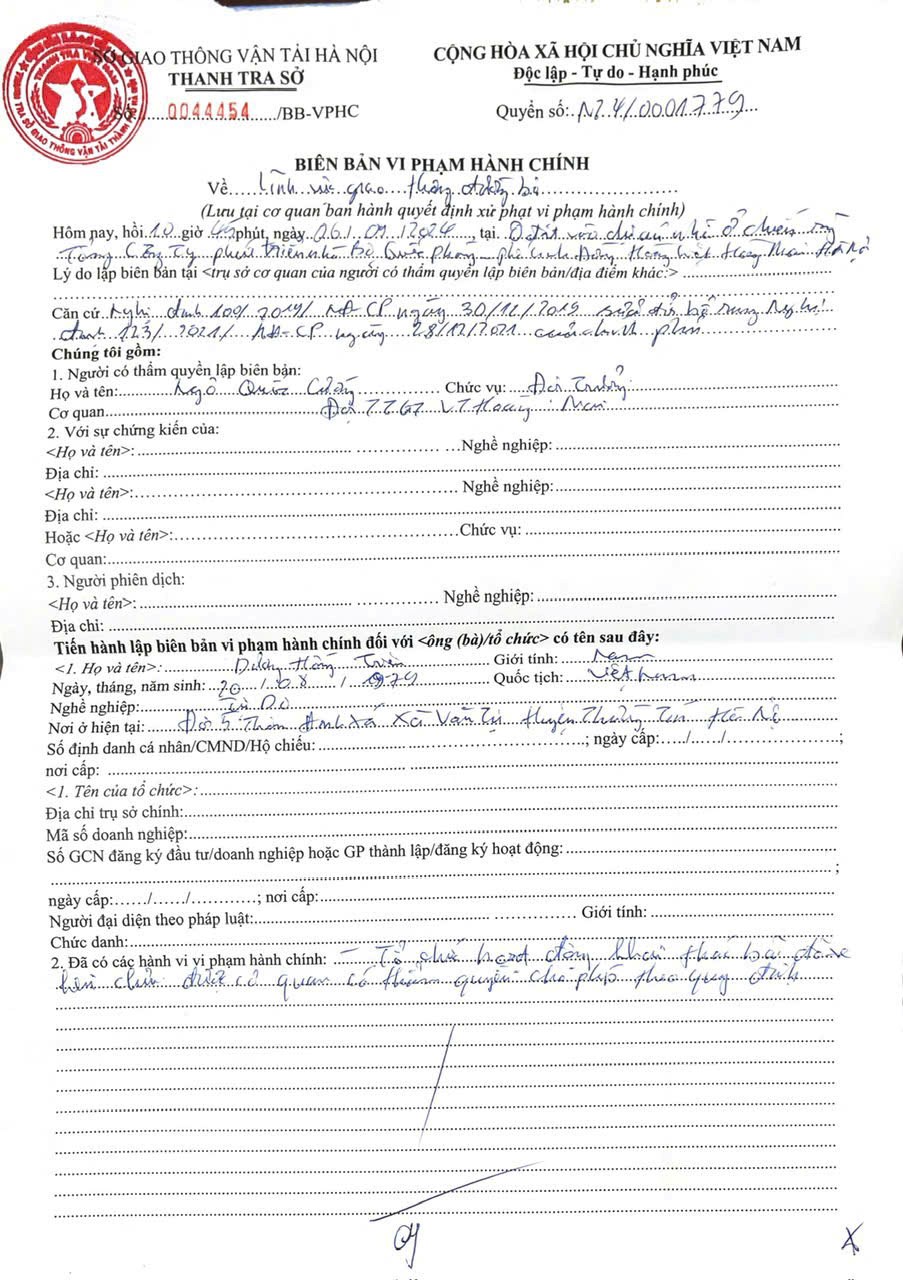 SỞ GIAO THÔNG VẬN TẢI HÀ NỘI
THANH TRA SỞ
Số: 0044454 /BB-VPHC
CỘNG HÒA XÃ HỘI CHỦ NGHĨA VIỆT NAM
Độc lập - Tự do - Hạnh phúc
Quyển số: N2.4/0001779
BIÊN BẢN VI PHẠM HÀNH CHÍNH
Về lĩnh vực giao thông đường bộ
(Lưu tại cơ quan ban hành quyết định xử phạt vi phạm hành chính)
Hôm nay, hồi 10 giờ phút, ngày 26/ 09/ 2024, tại
Tổng Công Ty phát triển nhà Bộ Quốc Phòng
Lý do lập biên bản tại <trụ sở cơ quan của người có thẩm quyền lập biên bản/địa điểm khác:>
Căn cứ Nghị định 100/ 2019/ NĐ-CP ngày 30/12/2019 sửa đổi bổ sung Nghị
định 123/ 2021/ NĐ-CP ngày 28/12/2021 của chính phủ
Chúng tôi gồm:
1. Người có thẩm quyền lập biên bản:
Họ và tên: Ngô Quốc Cường Chức vụ: Đội Trưởng
Cơ quan Đội TTGT VT Hoàng Mai
2. Với sự chứng kiến của:
<Họ và tên>: Nghề nghiệp:
Địa chỉ:
<Họ và tên>: Nghề nghiệp:
Địa chỉ:
Hoặc <Họ và tên>: Chức vụ:
Cơ quan:
3. Người phiên dịch:
<Họ và tên>: Nghề nghiệp:
Địa chỉ:
Tiến hành lập biên bản vi phạm hành chính đối với <ông (bà)/tổ chức> có tên sau đây:
<1. Họ và tên>: Hồng Giới tính: Nam
Ngày, tháng, năm sinh: 20 / 08 / 1979 Quốc tịch: Việt Nam
Nghề nghiệp: Tự Do
Nơi ở hiện tại: Đội 5 Thôn Xã Vân Tự Huyện Thường Tín Hà Nội
Số định danh cá nhân/CMND/Hộ chiếu: ; ngày cấp: / / ;
nơi cấp:
<1. Tên của tổ chức>:
Địa chỉ trụ sở chính:
Mã số doanh nghiệp:
Số GCN đăng ký đầu tư/doanh nghiệp hoặc GP thành lập/đăng ký hoạt động: ;
ngày cấp: / / ; nơi cấp:
Người đại diện theo pháp luật: Giới tính:
Chức danh:
2. Đã có các hành vi vi phạm hành chính: - Tổ chức hoạt động khai thác bến
chưa được cơ quan có thẩm quyền cho phép theo quy định